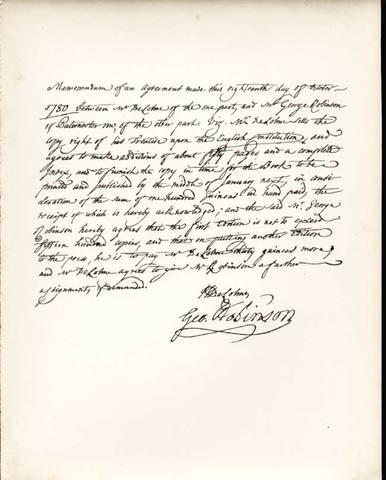 Memorandum of an Agreement made this eighteenth day of October
1780 between Mr. DeLolme of the one part, and Mr. George Robinson
of Paternoster row, of the other part. Viz. Mr. DeLolme sells the
copy right of his Treatise upon the English Constitution, and
agrees to make additions of about fifty pages and a complete
Index, and to furnish the copy in time for the Book to be
printed and published by the middle of January next, in consi-
deration of the sum of one hundred guineas in hand paid, the
receipt of which is hereby acknowledged; and the said Mr. George
Robinson hereby agrees that the first Edition is not to exceed
fifteen hundred copies, and that on putting another Edition
to the press, he is to pay Mr. DeLolme thirty guineas more,
and Mr. DeLolme agrees to give Mr. Robinson a further
assignment, if demanded.
DeLolme,
Geo. Robinson